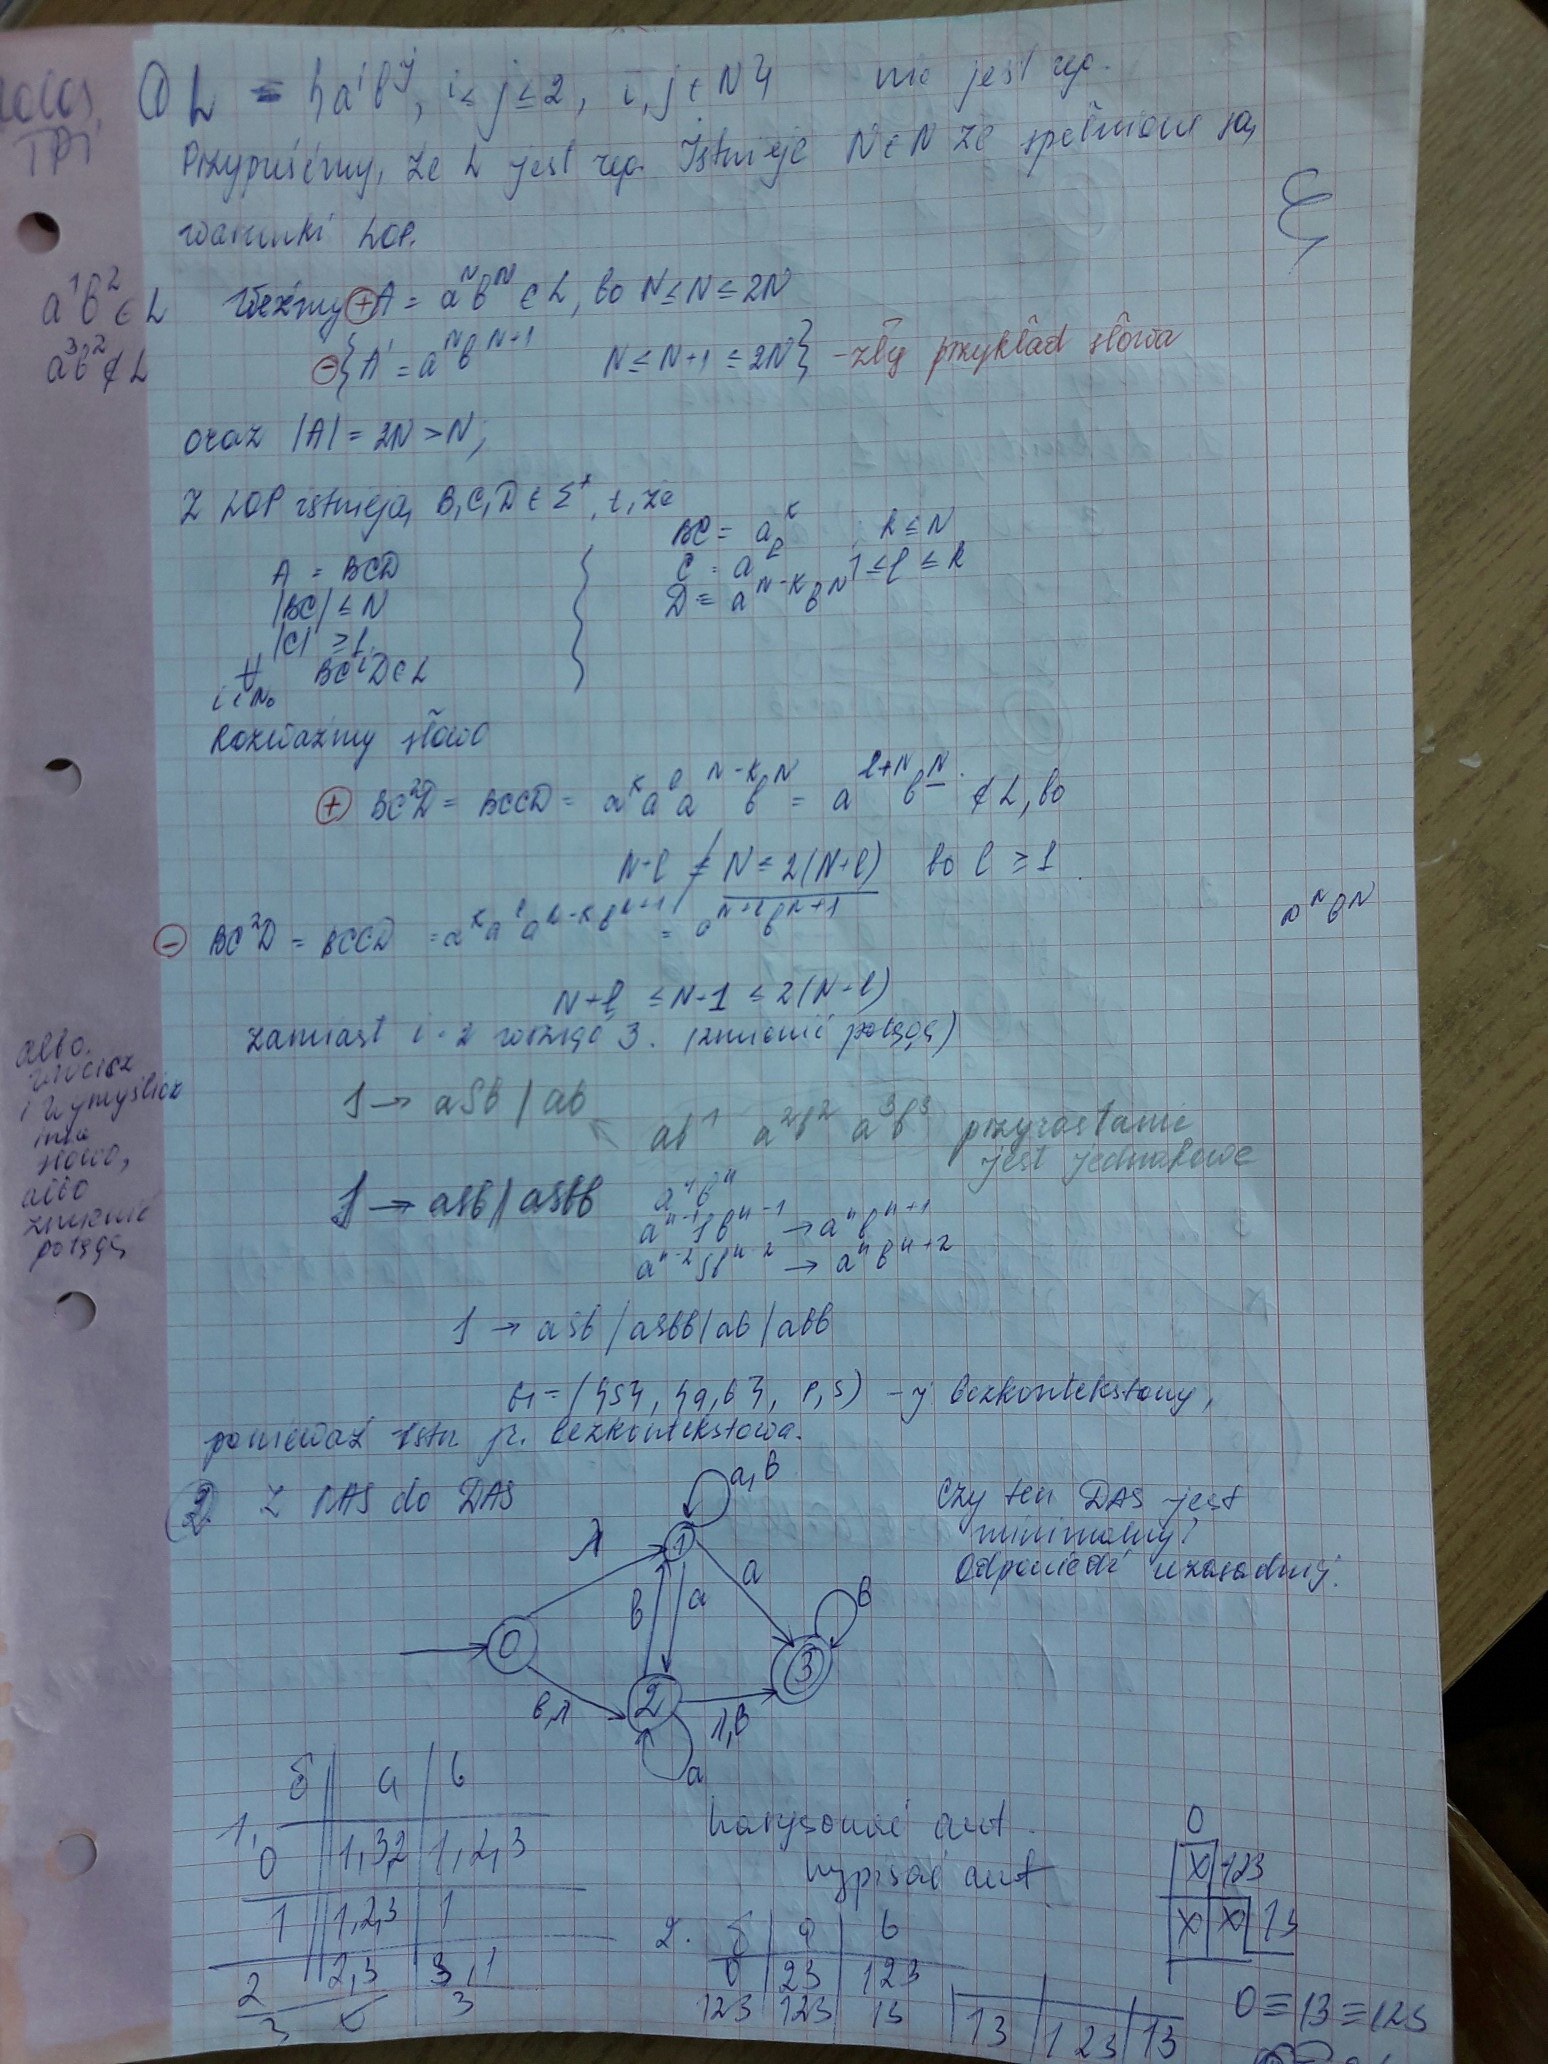 ① L = {a^i b^j, i ≤ j ≤ 2, i, j ∈ N} nie jest reg.
Przypuśćmy, że L jest reg. Istnieje N ∈ N że spełnione są
warunki LOP.
a^1 b^2 ∈ L
a^3 b^2 ∉ L
Weźmy ⊕ A = a^N b^N ∈ L, bo N ≤ N ≤ 2N
⊖ { A' = a^N b^{N+1} N ≤ N+1 ≤ 2N } - zły przykład słowa
oraz |A| = 2N > N,
Z LOP istnieją B, C, D ∈ Σ*, t, że
A = BCD
|BC| ≤ N
|C| ≥ 1
∀ BC^iD ∈ L
i ∈ N₀
BC = a^k k ≤ N
C = a^l 1 ≤ l ≤ k
D = a^{N-k} b^N
Rozważmy słowo
⊕ BC²D = BCCD = a^k a^l a^{N-k} b^N = a^{l+N} b^N ∉ L, bo
N+l ≰ N ≤ 2(N+l) bo l ≥ 1
⊖ BC²D = BCCD = a^k a^l a^{N-k} b^{N+1} = a^{N+l} b^{N+1}
a^N b^N
N+l ≤ N+1 ≤ 2(N+l)
zamiast i=2 wziąć 3. (zmienić potęgę)
albo
wrócisz
i wymyślisz
inne
słowo,
albo
zmienić
potęgę
S → aSb | ab
ab^1 a^2b^2 a^3b^3 przyrastanie
jest jednakowe
S → aSb | aSbb
a^n b^n
a^{n-1} S b^{n-1} → a^n b^{n+1}
a^{n-2} S b^{n-2} → a^n b^{n+2}
S → aSb | aSbb | ab | abb
G = ({S}, {a, b}, P, S) - j bezkontekstowy,
ponieważ istn gr. bezkontekstowa.
② Z NAS do DAS
Czy ten DAS jest
minimalny?
Odpowiedź uzasadnij.
a, b
λ
1
a
b
a
b
0
3
2
b, λ
λ, b
a
δ | a | b
1.
0 | 1,3,2 | 1,2,3
1 | 1,2,3 | 1
2 | 2,3 | 3,1
3 | ∅ | 3
Narysować aut.
wypisać aut
2. δ | a | b
0 | 23 | 123
123 | 123 | 13
13 | 123 | 13
0
X 123
X X 13
0 ≡ 13 ≡ 123